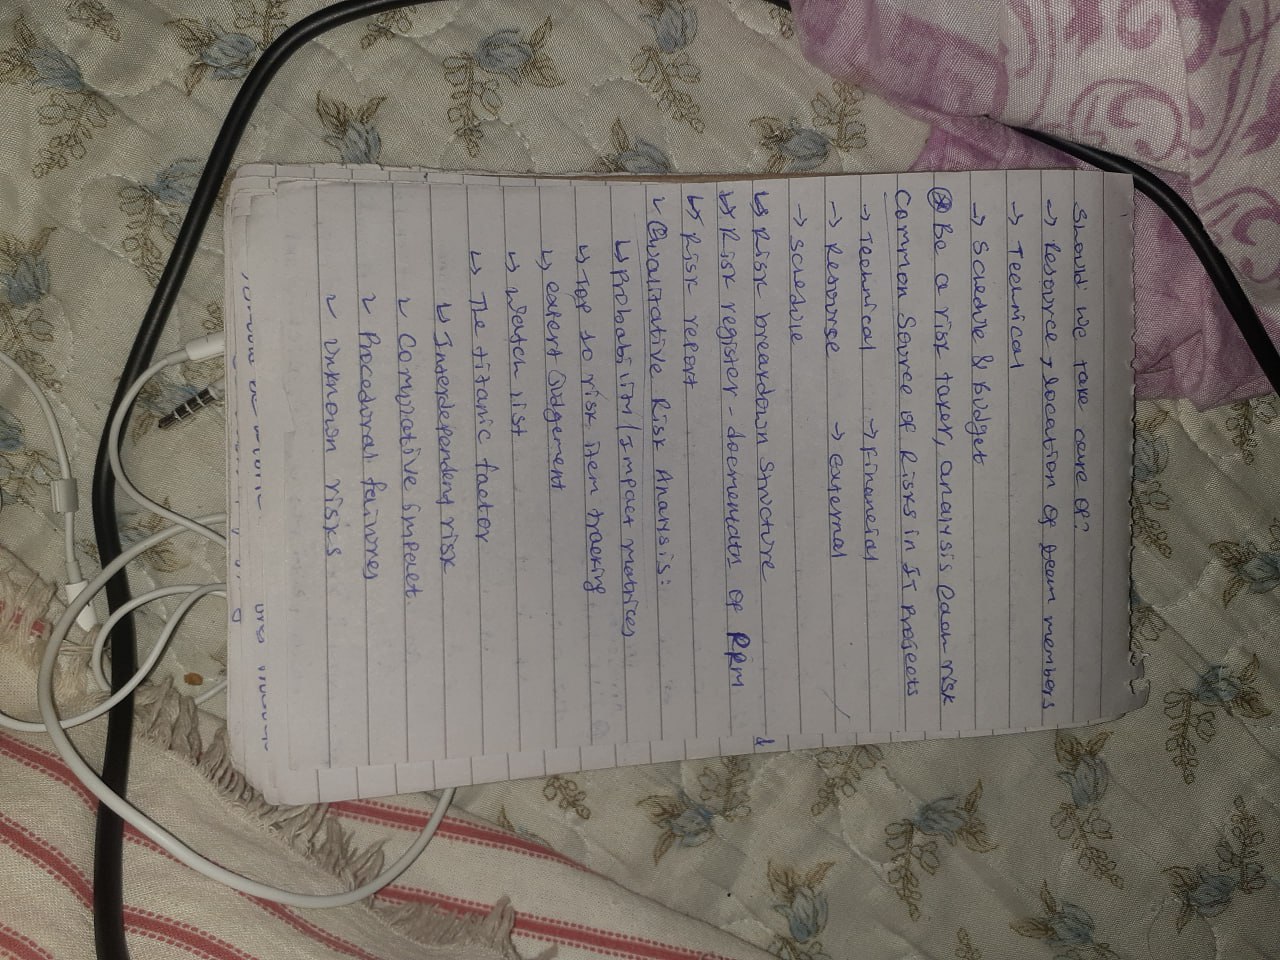 Should we take care of?
→ Resource, location of team members
→ Technical
→ Schedule & Budget
⊛ Be a risk taker, analysis each risk
Common Source of Risks in IT Projects
→ Technical → Financial
→ Resourse → External
→ Schedule
↳ Risk breakdown Structure
↳ Risk register - documentatn of PRM
↳ Risk report
↳ Qualitative Risk Analysis:
↳ Probability/Impact matrices
↳ Top 10 risk item tracking
↳ expert Judgement
↳ Watch list
↳ The titanic factor
↳ Interdependent risk
↳ Complative impact.
↳ Procedural failures
↳ unknown risks